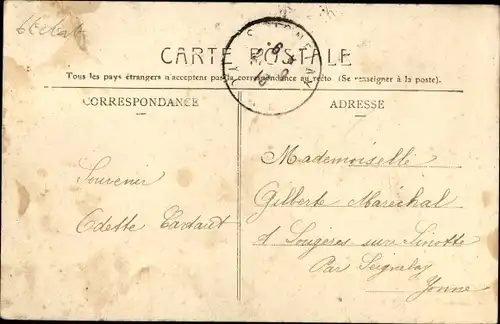 CARTE POSTALE
Tous les pays étrangers n'acceptent pas la correspondance au recto (Se renseigner à la poste).
CORRESPONDANCE
ADRESSE
Souvenir
Odette
Mademoiselle
Gilberte Maréchal
à Sougères sur Sinotte
Par Seignelay
Yonne